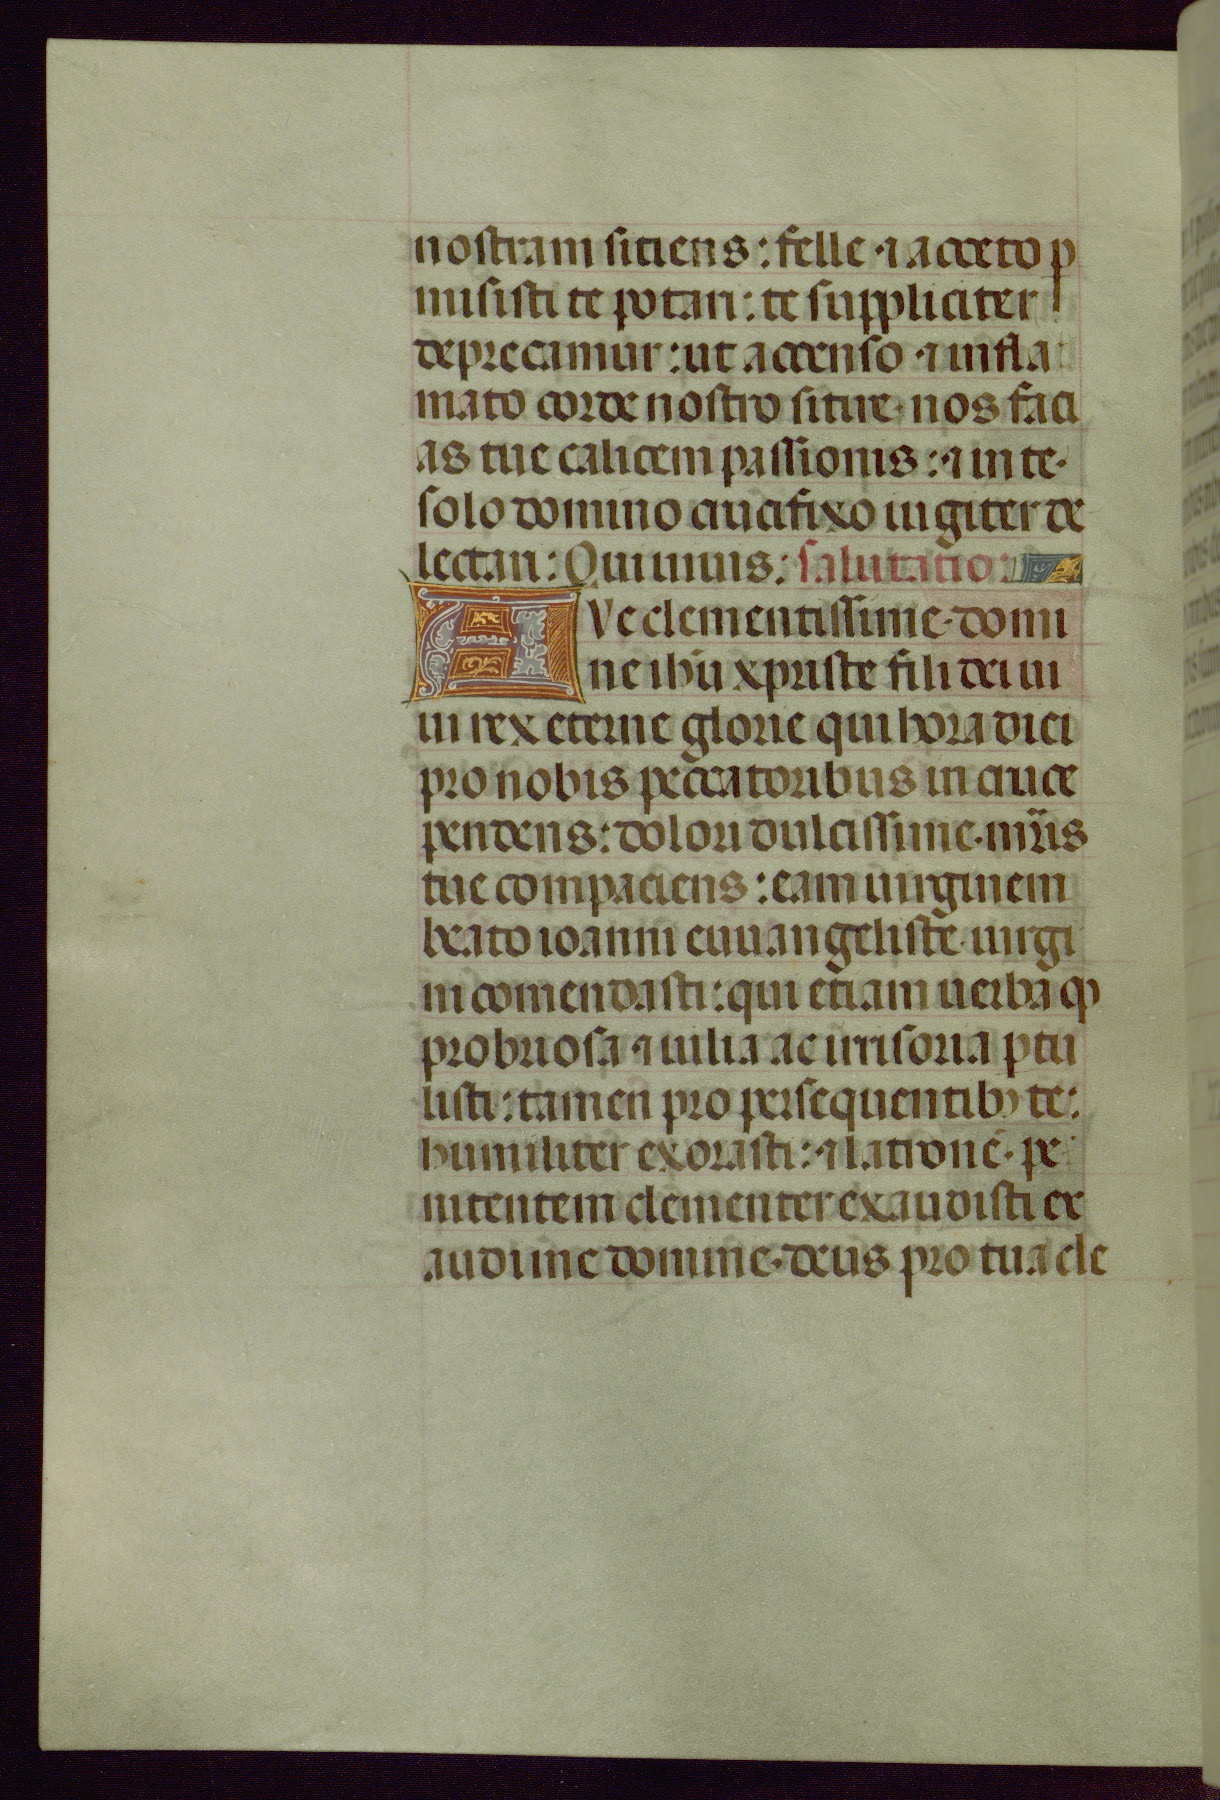 nostram sitiens: felle ⁊ acceto p
misisti te potari: te suppliciter
deprecamur: ut accenso ⁊ infla
mato corde nostro sitire nos faci
as tue calicem passionis: ⁊ in te
solo domino crucifixo iugiter de
lectari: Qui uiuis: salutatio:
AVe clementissime domi
ne ihũ xpriste fili dei ui
ui rex eterne glorie qui hora diei
pro nobis peccatoribus in cruce
pendens: dolori dulcissime mr̃is
tue compaciens: eam uirginem
beato ioanni euuangeliste uirgi
ni comendasti: qui etiam uerba q̃
probriosa ⁊ uilia ac irrisoria ptu
listi: tamen pro persequentibꝫ te:
humiliter exorasti: ⁊ latrone pe
nitentem clementer exaudisti ex
audi me domine deus pro tua cle